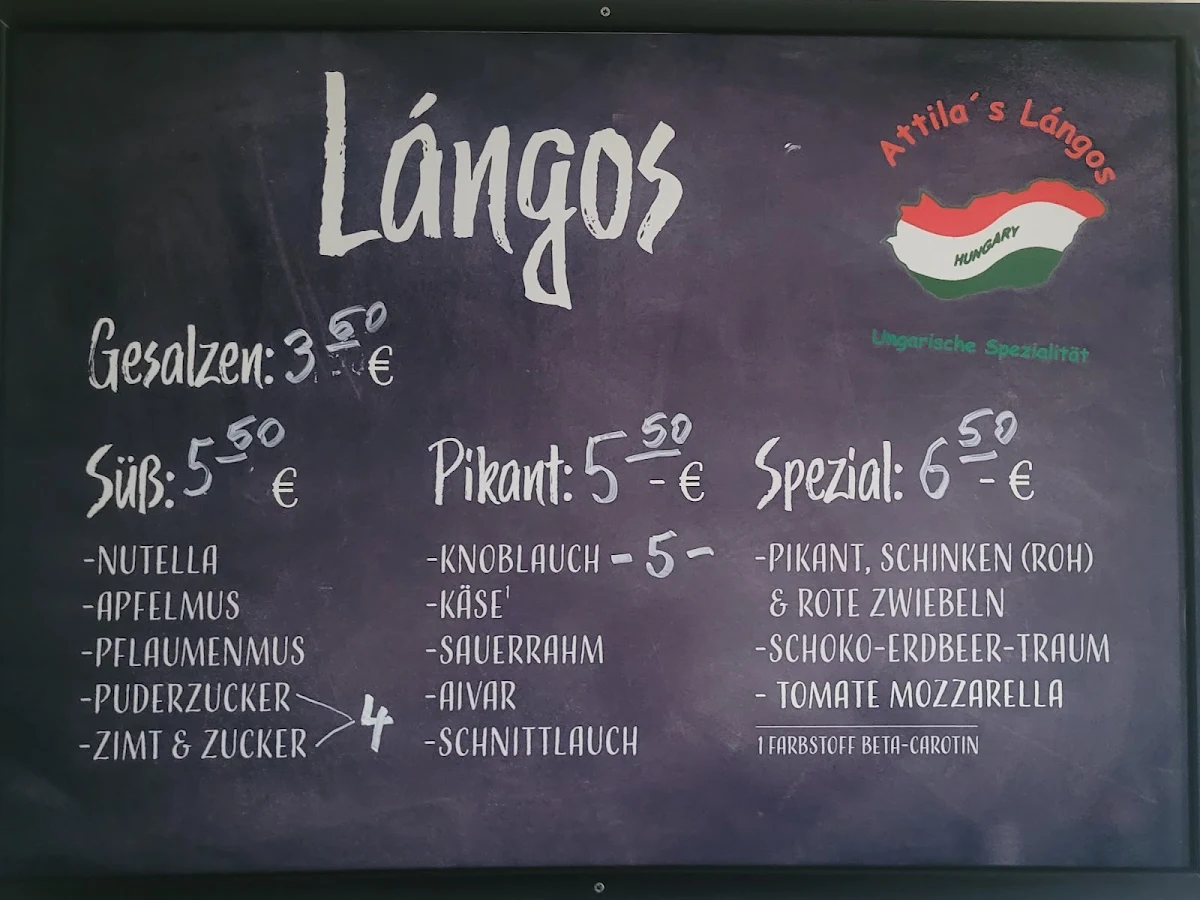 Lángos
Attila´s Lángos
HUNGARY
Ungarische Spezialität
Gesalzen: 3 50 €
Süß: 5 50 €
-NUTELLA
-APFELMUS
-PFLAUMENMUS
-PUDERZUCKER
-ZIMT & ZUCKER
4
Pikant: 5 50 - €
-KNOBLAUCH - 5 -
-KÄSE¹
-SAUERRAHM
-AIVAR
-SCHNITTLAUCH
Spezial: 6 50 - €
-PIKANT, SCHINKEN (ROH)
& ROTE ZWIEBELN
-SCHOKO-ERDBEER-TRAUM
- TOMATE MOZZARELLA
1 FARBSTOFF BETA-CAROTIN